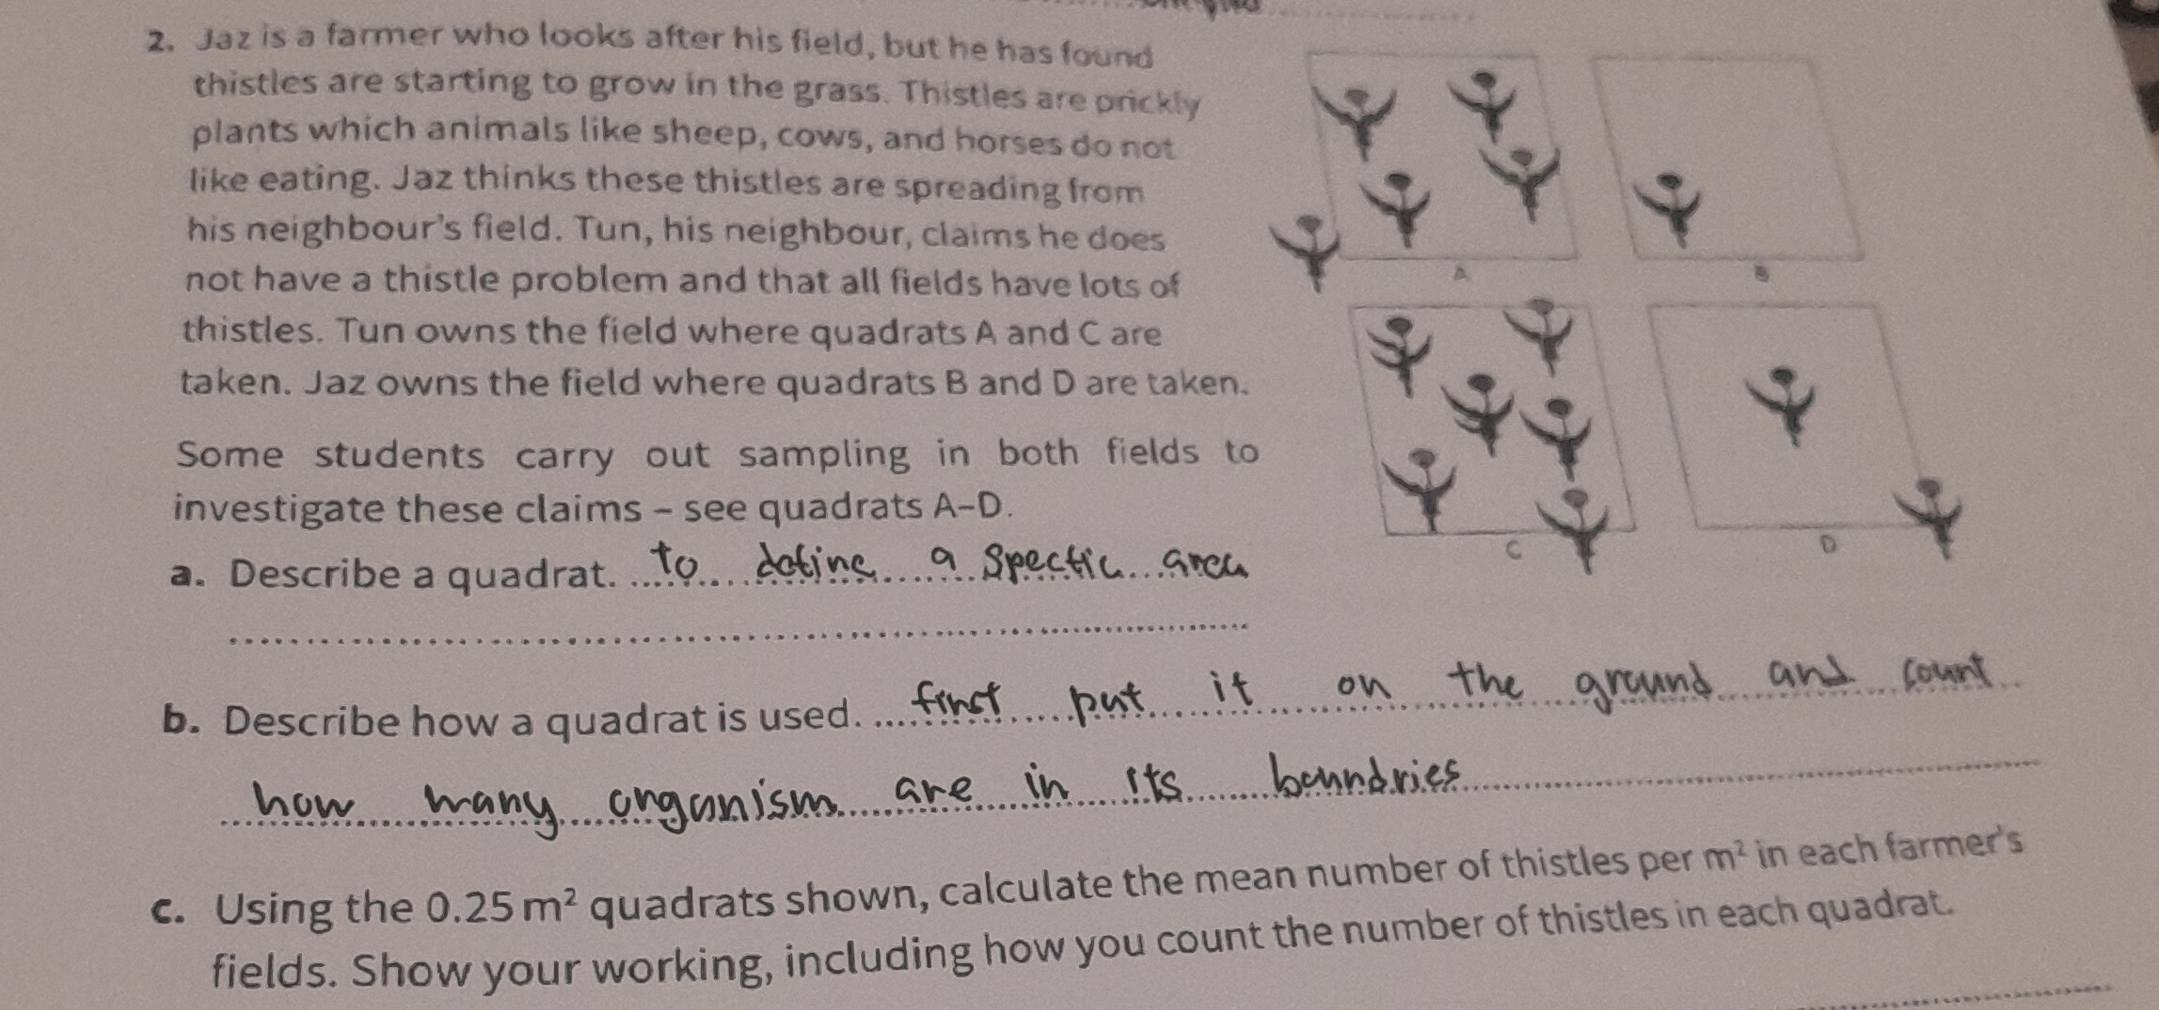 2. Jaz is a farmer who looks after his field, but he has found
thistles are starting to grow in the grass. Thistles are prickly
plants which animals like sheep, cows, and horses do not
like eating. Jaz thinks these thistles are spreading from
his neighbour's field. Tun, his neighbour, claims he does
not have a thistle problem and that all fields have lots of
thistles. Tun owns the field where quadrats A and C are
taken. Jaz owns the field where quadrats B and D are taken.
Some students carry out sampling in both fields to
investigate these claims – see quadrats A–D.
A
B
C
D
a. Describe a quadrat. to define a spectic area
b. Describe how a quadrat is used. first put it on the ground and count
how many organism are in its boundries
c. Using the 0.25 m² quadrats shown, calculate the mean number of thistles per m² in each farmer's
fields. Show your working, including how you count the number of thistles in each quadrat.